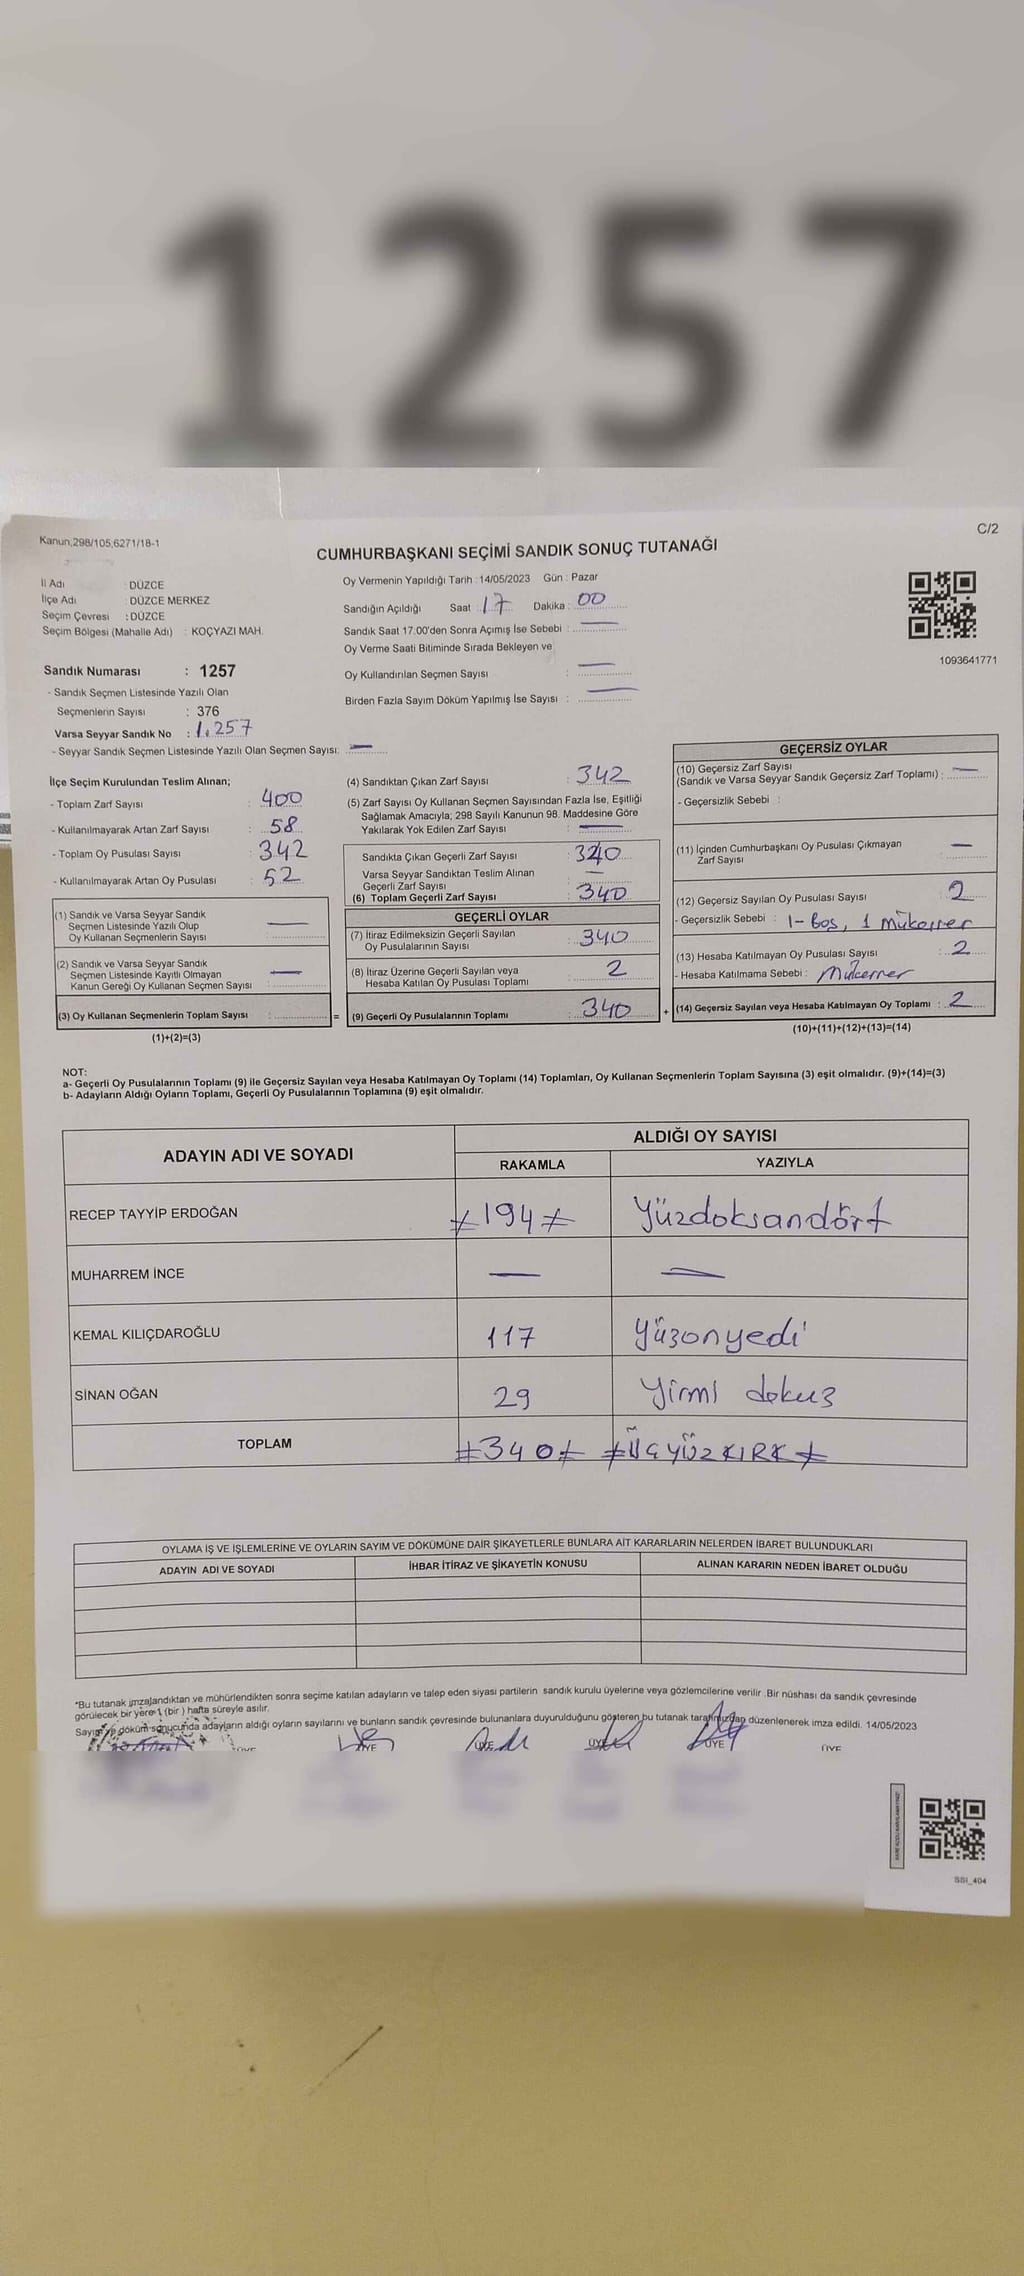 1257
Kanun,298/105,6271/18-1
C/2
CUMHURBAŞKANI SEÇİMİ SANDIK SONUÇ TUTANAĞI
İl Adı : DÜZCE
İlçe Adı : DÜZCE MERKEZ
Seçim Çevresi : DÜZCE
Seçim Bölgesi (Mahalle Adı) : KOÇYAZI MAH.
Oy Vermenin Yapıldığı Tarih : 14/05/2023 Gün : Pazar
Sandığın Açıldığı Saat : 17 Dakika : 00
Sandık Saat 17:00'den Sonra Açımış İse Sebebi : —
Oy Verme Saati Bitiminde Sırada Bekleyen ve
Oy Kullandırılan Seçmen Sayısı : —
Birden Fazla Sayım Döküm Yapılmış İse Sayısı : —
1093641771
Sandık Numarası : 1257
- Sandık Seçmen Listesinde Yazılı Olan
Seçmenlerin Sayısı : 376
Varsa Seyyar Sandık No : 1.257
- Seyyar Sandık Seçmen Listesinde Yazılı Olan Seçmen Sayısı: —
İlçe Seçim Kurulundan Teslim Alınan;
- Toplam Zarf Sayısı : 400
- Kullanılmayarak Artan Zarf Sayısı : 58
- Toplam Oy Pusulası Sayısı : 342
- Kullanılmayarak Artan Oy Pusulası : 52
(1) Sandık ve Varsa Seyyar Sandık
Seçmen Listesinde Yazılı Olup
Oy Kullanan Seçmenlerin Sayısı : —
(2) Sandık ve Varsa Seyyar Sandık
Seçmen Listesinde Kayıtlı Olmayan
Kanun Gereği Oy Kullanan Seçmen Sayısı : —
(3) Oy Kullanan Seçmenlerin Toplam Sayısı : =
(1)+(2)=(3)
(4) Sandıktan Çıkan Zarf Sayısı : 342
(5) Zarf Sayısı Oy Kullanan Seçmen Sayısından Fazla İse, Eşitliği
Sağlamak Amacıyla; 298 Sayılı Kanunun 98. Maddesine Göre
Yakılarak Yok Edilen Zarf Sayısı : —
Sandıkta Çıkan Geçerli Zarf Sayısı : 340
Varsa Seyyar Sandıktan Teslim Alınan
Geçerli Zarf Sayısı : —
(6) Toplam Geçerli Zarf Sayısı : 340
GEÇERLİ OYLAR
(7) İtiraz Edilmeksizin Geçerli Sayılan
Oy Pusulalarının Sayısı : 340
(8) İtiraz Üzerine Geçerli Sayılan veya
Hesaba Katılan Oy Pusulası Toplamı : 2
(9) Geçerli Oy Pusulalarının Toplamı : 340 +
GEÇERSİZ OYLAR
(10) Geçersiz Zarf Sayısı
(Sandık ve Varsa Seyyar Sandık Geçersiz Zarf Toplamı) : —
- Geçersizlik Sebebi :
(11) İçinden Cumhurbaşkanı Oy Pusulası Çıkmayan
Zarf Sayısı : —
(12) Geçersiz Sayılan Oy Pusulası Sayısı : 2
- Geçersizlik Sebebi : 1-Boş, 1 Mükerrer
(13) Hesaba Katılmayan Oy Pusulası Sayısı : 2
- Hesaba Katılmama Sebebi : Mükerrer
(14) Geçersiz Sayılan veya Hesaba Katılmayan Oy Toplamı : 2
(10)+(11)+(12)+(13)=(14)
NOT:
a- Geçerli Oy Pusulalarının Toplamı (9) ile Geçersiz Sayılan veya Hesaba Katılmayan Oy Toplamı (14) Toplamları, Oy Kullanan Seçmenlerin Toplam Sayısına (3) eşit olmalıdır. (9)+(14)=(3)
b- Adayların Aldığı Oyların Toplamı, Geçerli Oy Pusulalarının Toplamına (9) eşit olmalıdır.
ADAYIN ADI VE SOYADI
ALDIĞI OY SAYISI
RAKAMLA YAZIYLA
RECEP TAYYİP ERDOĞAN ≠194≠ Yüzdoksandört
MUHARREM İNCE — —
KEMAL KILIÇDAROĞLU 117 Yüzonyedi
SİNAN OĞAN 29 Yirmi dokuz
TOPLAM ≠340≠ ≠ÜÇYÜZKIRK≠
OYLAMA İŞ VE İŞLEMLERİNE VE OYLARIN SAYIM VE DÖKÜMÜNE DAİR ŞİKAYETLERLE BUNLARA AİT KARARLARIN NELERDEN İBARET BULUNDUKLARI
ADAYIN ADI VE SOYADI İHBAR İTİRAZ VE ŞİKAYETİN KONUSU ALINAN KARARIN NEDEN İBARET OLDUĞU
*Bu tutanak imzalandıktan ve mühürlendikten sonra seçime katılan adayların ve talep eden siyasi partilerin sandık kurulu üyelerine veya gözlemcilerine verilir. Bir nüshası da sandık çevresinde
görülecek bir yere 1 (bir ) hafta süreyle asılır.
Sayım ve döküm sonucunda adayların aldığı oyların sayılarını ve bunların sandık çevresinde bulunanlara duyurulduğunu gösteren bu tutanak tarafımızdan düzenlenerek imza edildi. 14/05/2023
ÜYE ÜYE ÜYE ÜYE ÜYE ÜYE
SSI_404